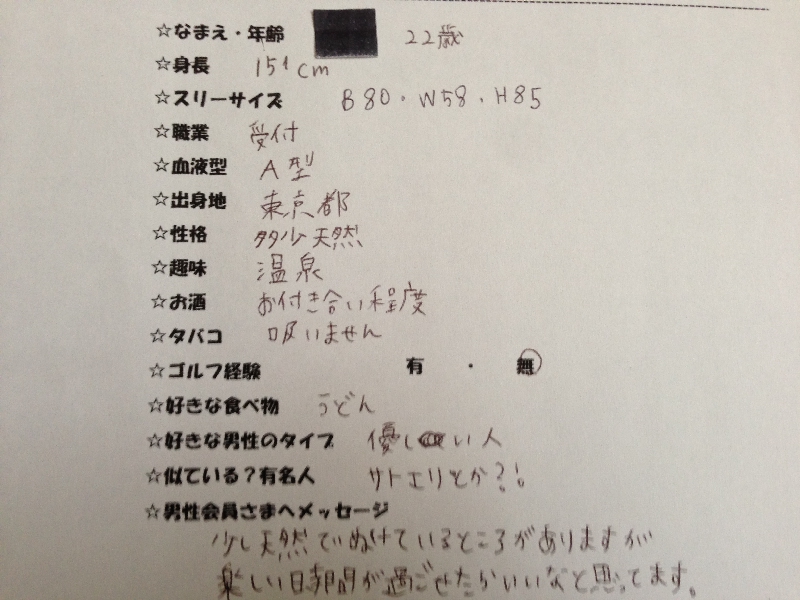 ☆なまえ・年齢 22歳
☆身長 151cm
☆スリーサイズ B80・W58・H85
☆職業 受付
☆血液型 A型
☆出身地 東京都
☆性格 多少天然
☆趣味 温泉
☆お酒 お付き合い程度
☆タバコ 吸いません
☆ゴルフ経験 有・無
☆好きな食べ物 うどん
☆好きな男性のタイプ 優しい人
☆似ている?有名人 サトエリとか?!
☆男性会員さまへメッセージ
少し天然でぬけているところがありますが
楽しい日時間が過ごせたらいいなと思ってます。